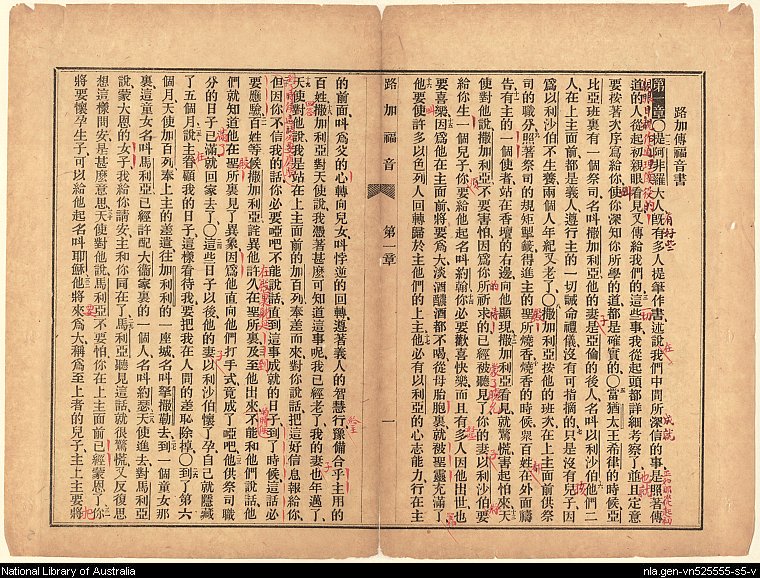 路加傳福音書
第一章〇提阿非羅大人旣有多人提筆作書述說我們中間所深信的事是照著傳
道的人從起初親眼看見又傳給我們的這些事我從起頭都詳細考察了並且定意
要按著次序寫給你使你深知你所學的道都是確實的〇當猶太王希律的時候亞
比亞班裏有一個祭司名叫撒加利亞他的妻是亞倫的後人名叫以利沙伯他們二
人在上主面前都是義人遵行主的一切誡命禮儀沒有可指摘的只是沒有兒子因
爲以利沙伯不生養兩個人年紀又老了〇撒加利亞按他的班次在上主面前供祭
司的職分照著祭司的規矩掣籤得進主的聖所燒香燒香的時候衆百姓在外面禱
告有主的一個使者站在香壇的右邊向他顯現撒加利亞看見就驚慌害起怕來天
使對他說撒加利亞不要害怕因爲你所祈求的已經被聽見了你的妻以利沙伯要
給你生一個兒子你要給他起名叫約翰你必要歡喜快樂而且有多人因他出世也
要喜樂因爲他在主面前將要爲大淡酒醲酒都不喝從母胎胞裏就被聖靈充滿了
他要使許多以色列人回轉歸於主他們的上主他必有以利亞的心志能力行在主
路加福音 第一章 一
的前面叫爲父的心轉向兒女叫悖逆的回轉遵著義人的智慧行豫備合乎主用的
百姓撒加利亞對天使說我憑著甚麽可知道這事呢我已經老了我的妻也年邁了
天使對他說我是站在上主面前的加百列奉差而來對你說話把這好信息報給你
但因你不信我的話你必要啞吧不能說話直到這事成就的日子到了時候這話必
要應驗百姓等候撒加利亞詫異他許久在聖所裏及至他出來不能和他們說話他
們就知道他在聖所裏見了異象因爲他直向他們打手式竟成了啞吧他供祭司職
分的日子已滿就回家去了〇這些日子以後他的妻以利沙伯懷了孕自己就隱藏
了五個月說主眷顧我的日子這樣看待我要把我在人間的羞恥除掉〇到了第六
個月天使加百列奉上主的差遣往加利利的一座城名叫拏撒勒去到一個童女那
裏這童女名叫馬利亞已經許配大衞家裏的一個人名叫約瑟天使進去對馬利亞
說蒙大恩的女子我給你請安主和你同在了馬利亞聽見這話就很驚慌又反復思
想這樣問安是甚麽意思天使對他說馬利亞不要怕你在上主面前已經蒙恩了你
將要懷孕生子可以給他起名叫耶穌他將來爲大稱爲至上者的兒子主上主要將
National Library of Australia
nla.gen-vn525555-s5-v